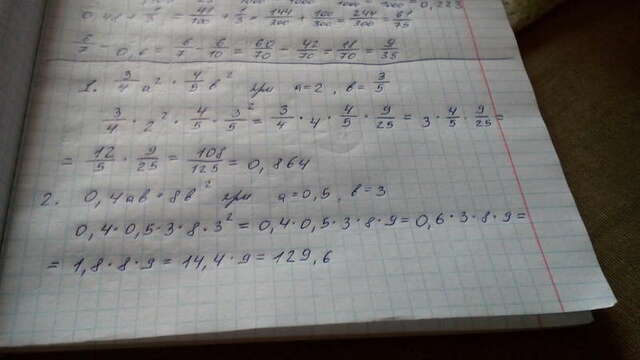 0,48 + 1/3 = 48/100 + 1/3 = 144/300 + 100/300 = 244/300 = 61/75
6/7 - 0,6 = 6/7 - 6/10 = 60/70 - 42/70 = 18/70 = 9/35
1. 3/4 a² · 4/5 в² при a=2, в= 3/5
3/4 · 2² · 4/5 · 3/5² = 3/4 · 4 · 4/5 · 9/25 = 3 · 4/5 · 9/25 =
= 12/5 · 9/25 = 108/125 = 0,864
2. 0,4aв · 8в² при a=0,5, в=3
0,4 · 0,5 · 3 · 8 · 3² = 0,4 · 0,5 · 3 · 8 · 9 = 0,6 · 3 · 8 · 9 =
= 1,8 · 8 · 9 = 14,4 · 9 = 129,6